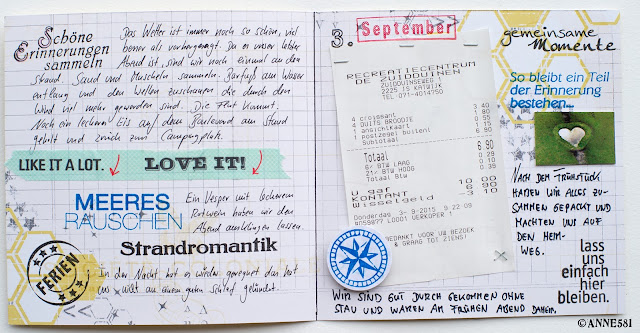 Schöne
Erinnerungen
sammeln
Das Wetter ist immer noch so schön, viel
besser als vorhergesagt. Da es unser letzter
Abend ist, sind wir noch einmal an den
Strand. Sand und Muscheln sammeln. Barfuß am Wasser
entlang und den Wellen zuschauen die durch den
Wind viel mehr geworden sind. Die Flut kommt.
Noch ein leckeres Eis auf dem Boulevard am Strand
geholt und zurück zum Campingplatz.
LIKE IT A LOT.
LOVE IT!
MEERES
RAUSCHEN
Ein Vesper mit leckerem
Rotwein haben wir den
Abend ausklingen lassen.
Strandromantik
FERIEN
In der Nacht hat es wieder geregnet das hat
uns nicht an einem guten Schlaf gehindert.
3.
September
RECREATIECENTRUM
DE ZUIDDUINEN
ZUIDDUINSEWEG 1
2225 JS KATWIJK
TEL:071-4014750
4 croissant 3 40
4 DUITS BROODJE
1 ansichtkaart
1 postzegel buitenl
Subtotaal 6 90
Totaal 6 90
6> BTW LAAG
21> BTW HOOG
Totaal Btw
U gaf 10 00
KONTANT 6 90
Wisselgeld 3 10
Donderdag 3- 9-2015 9 22 09
LODO01 VERKOPER 1
BEDANKT VOOR UW BEZOEK
& GRAAG TOT ZIENS!
gemeinsame
Momente
So bleibt ein Teil
der Erinnerung
bestehen...
NACH DEM FRÜHSTÜCK
HABEN WIR ALLES ZU-
SAMMEN GEPACKT UND
MACHTEN UNS AUF
DEN HEIM-
WEG.
lass
uns
einfach
hier
bleiben.
WIR SIND GUT DURCH GEKOMMEN OHNE
STAU UND WAREN AM FRÜHEN ABEND DAHEIM.
©ANNE581